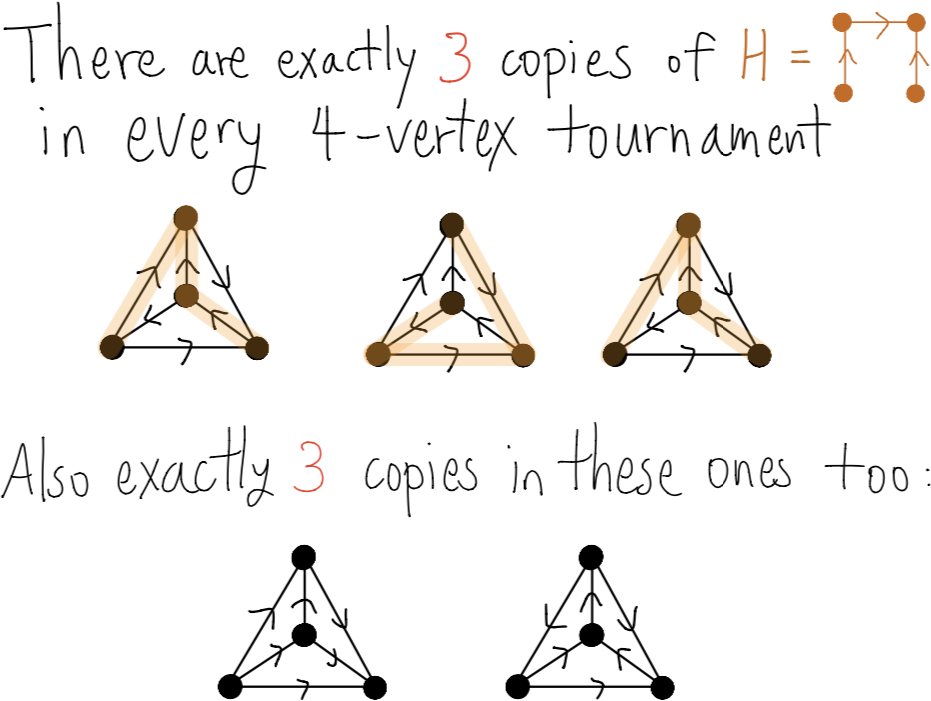 There are exactly 3 copies of H =
in every 4-vertex tournament
Also exactly 3 copies in these ones too: